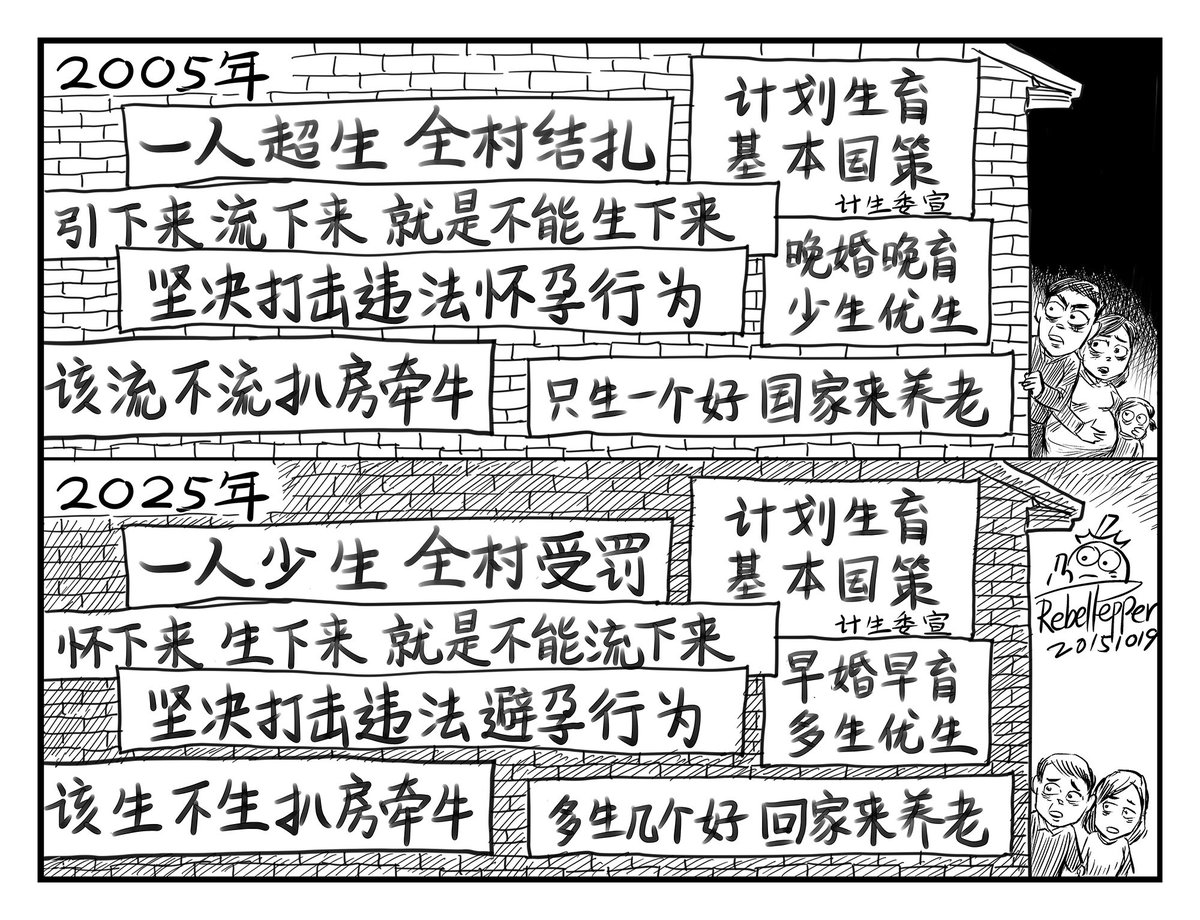 2005年
一人超生 全村结扎
计划生育
基本国策
计生委宣
引下来 流下来 就是不能生下来
晚婚晚育
少生优生
坚决打击违法怀孕行为
该流不流扒房牵牛
只生一个好 国家来养老
2025年
一人少生 全村受罚
计划生育
基本国策
计生委宣
怀下来 生下来 就是不能流下来
早婚早育
多生优生
坚决打击违法避孕行为
该生不生扒房牵牛
多生几个好 回家来养老
RebelPepper
20151019